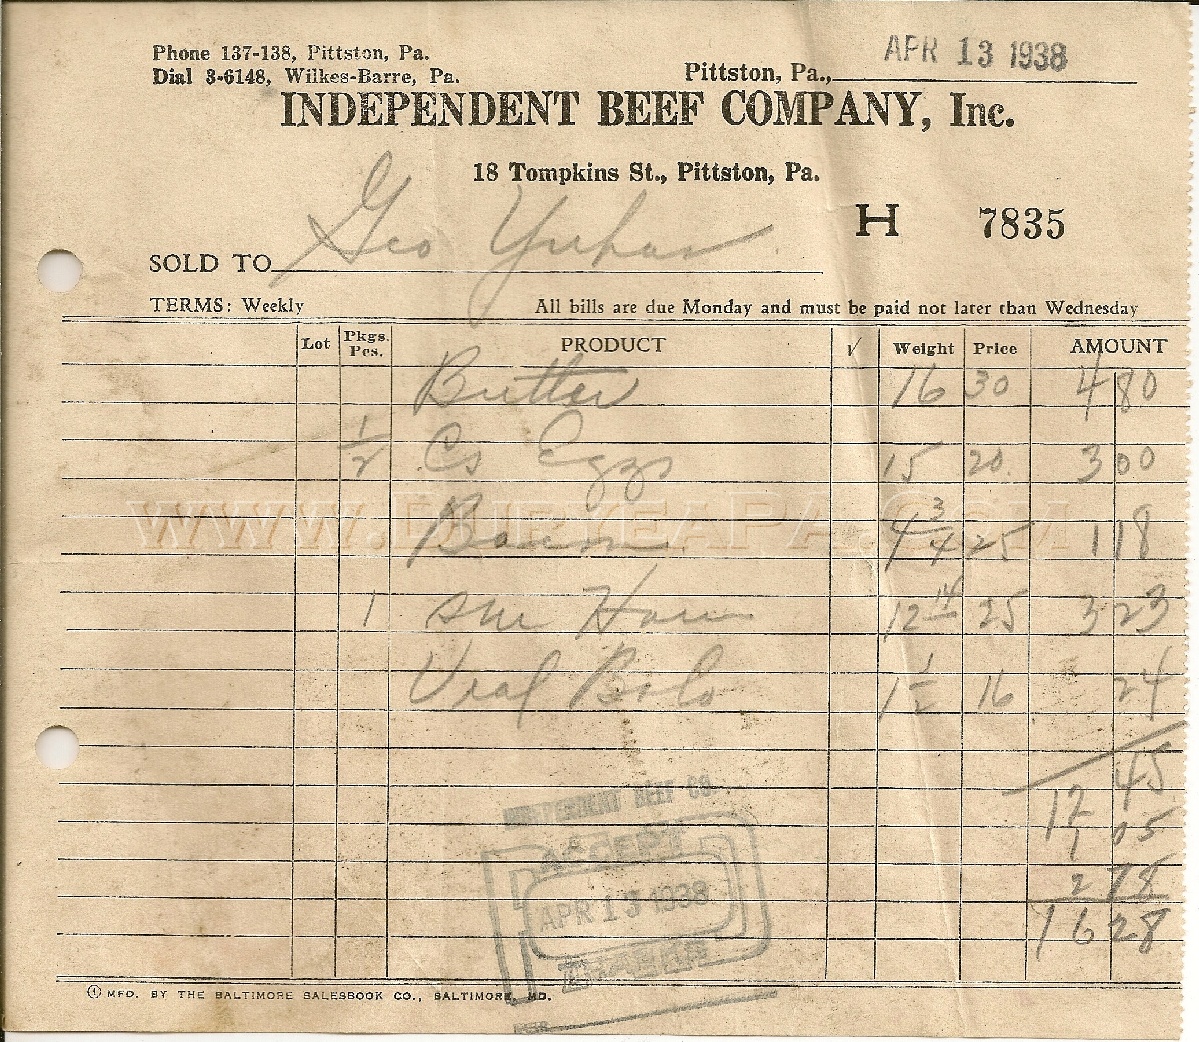 Phone 137-138, Pittston, Pa.
Dial 3-6148, Wilkes-Barre, Pa.
Pittston, Pa., APR 13 1938
INDEPENDENT BEEF COMPANY, Inc.
18 Tompkins St., Pittston, Pa.
H 7835
SOLD TO Geo Yuhas
TERMS: Weekly All bills are due Monday and must be paid not later than Wednesday
Lot Pkgs. Pcs. PRODUCT √ Weight Price AMOUNT
Butter 16 30 4 80
1/2 Cs Eggs 15 20 3 00
WWW.DURYEAPA.COM
Bacon 4 3/4 25 1 18
1 Ham 12 14 25 3 23
Veal Bolo 1 1/2 16 24
12 45
1 05
2 78
16 28
INDEPENDENT BEEF CO.
ACCEPT
APR 13 1938
MFD. BY THE BALTIMORE SALESBOOK CO., BALTIMORE, MD.